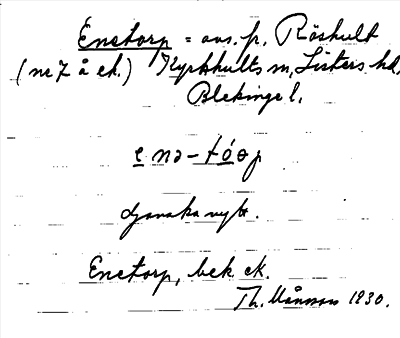 Enetorp = avs. fr. Röshult
(nr 7 å ek.) Kyrkhults sn, Listers hd,
Blekinge l.
e nə - tórp
ganska nytt.
Enetorp, bek. ek.
Th. Månsson 1930.